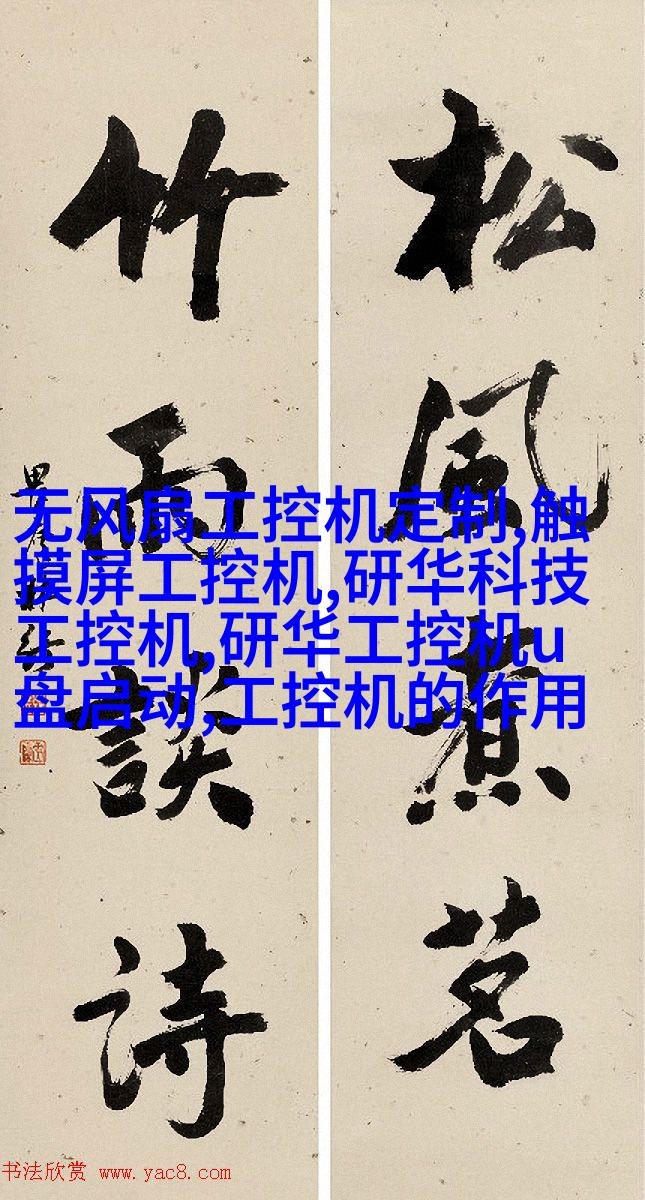 松風煮茗
竹雨談詩
无风扇工控机定制,触
摸屏工控机,研华科技
工控机,研华工控机u
盘启动,工控机的作用
书法欣赏 www.yac8.com